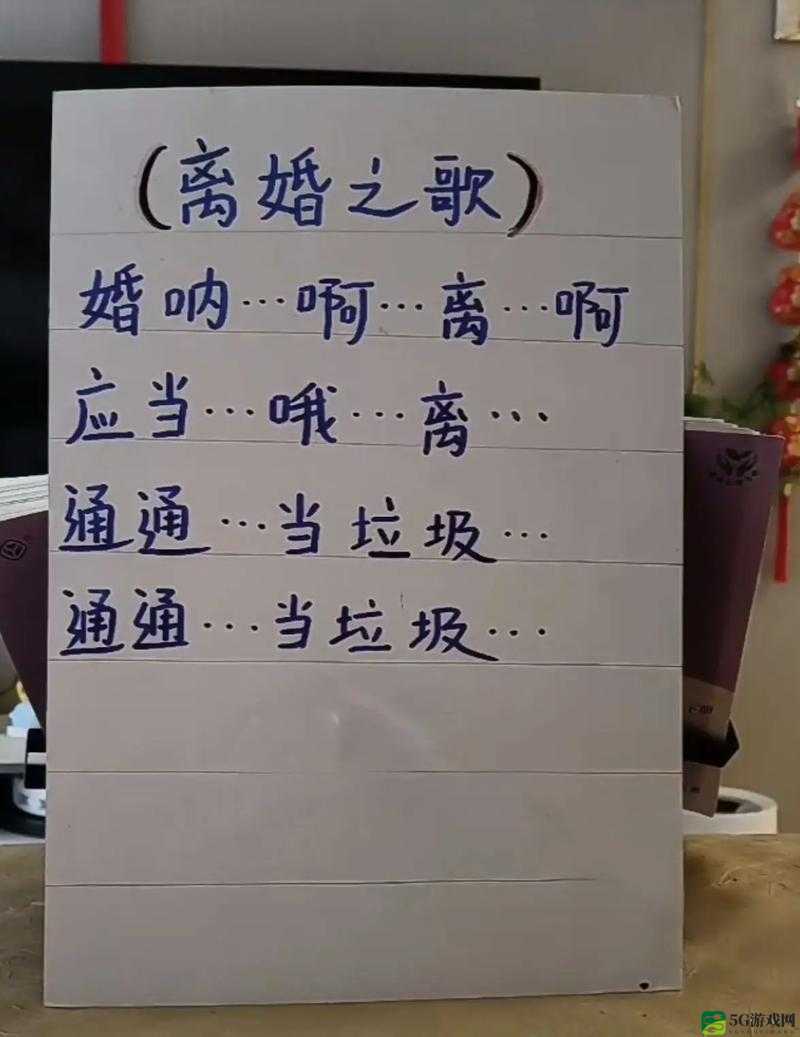 (离婚之歌)
婚呐…啊…离…啊
应当…哦…离…
通通…当垃圾…
通通…当垃圾…
5G游戏网